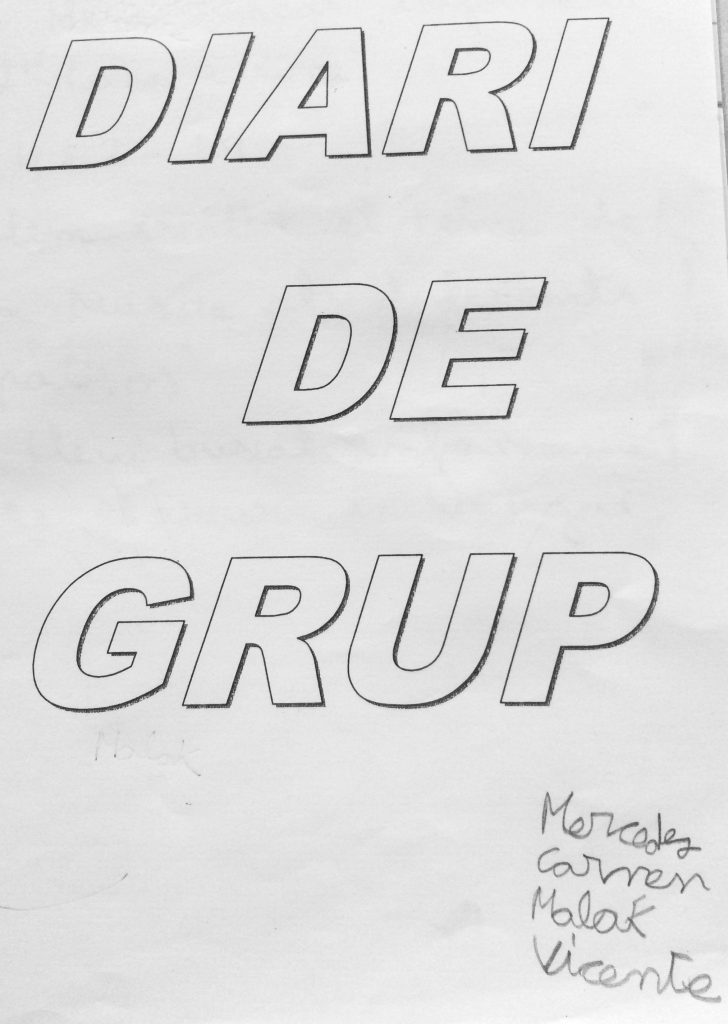 DIARI
DE
GRUP
Malak
Mercedes
Carmen
Malak
Vicente